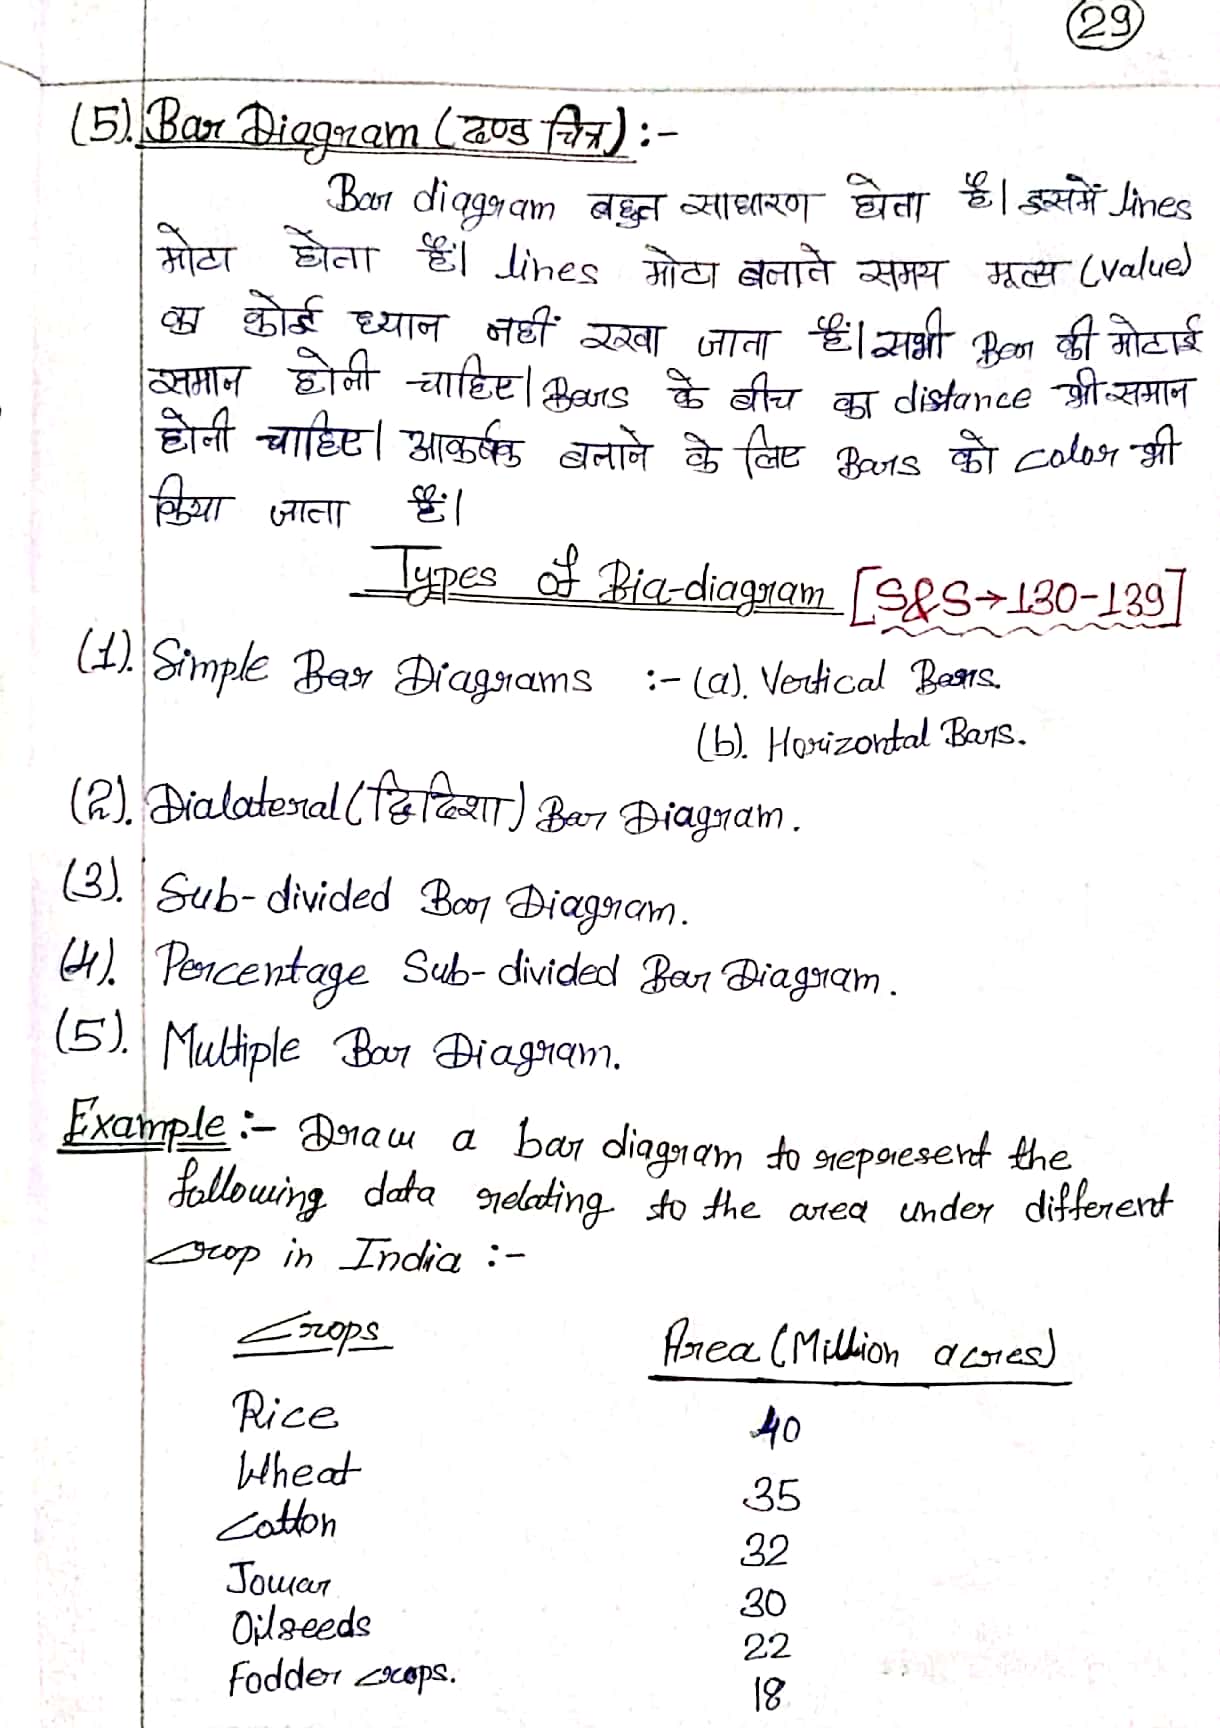 29
(5). Bar Diagram (दण्ड चित्र) :-
Bar diagram बहुत साधारण होता है। इसमें lines
मोटा होता हैं। lines मोटा बनाते समय मूल्य (value)
का कोई ध्यान नहीं रखा जाता हैं। सभी Bar की मोटाई
समान होनी चाहिए। Bars के बीच का distance भी समान
होनी चाहिए। आकर्षक बनाने के लिए Bars को color भी
किया जाता हैं।
Types of Bia-diagram [S&S→130-139]
(1). Simple Bar Diagrams :- (a). Vertical Bars.
(b). Horizontal Bars.
(2). Dialateral (द्वि दिशा) Bar Diagram.
(3). Sub-divided Bar Diagram.
(4). Percentage Sub-divided Bar Diagram.
(5). Multiple Bar Diagram.
Example :- Draw a bar diagram to represent the
following data relating to the area under different
crop in India :-
Crops Area (Million acres)
Rice 40
Wheat 35
Cotton 32
Jowar 30
Oilseeds 22
Fodder crops. 18